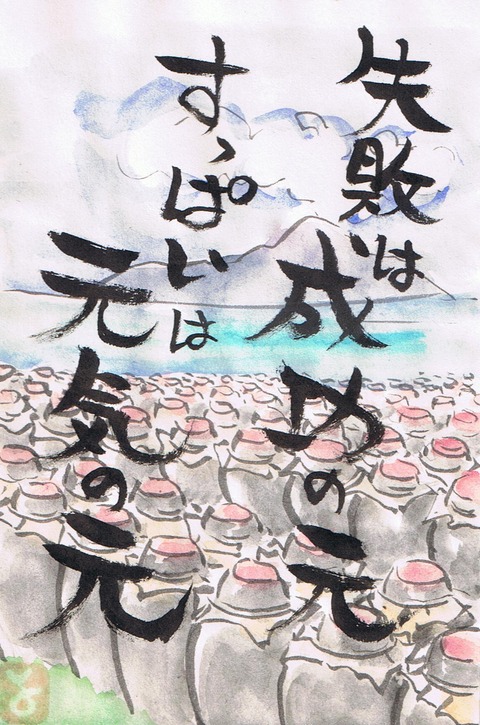 失敗は
成功の元
すっぱいは
元気の元